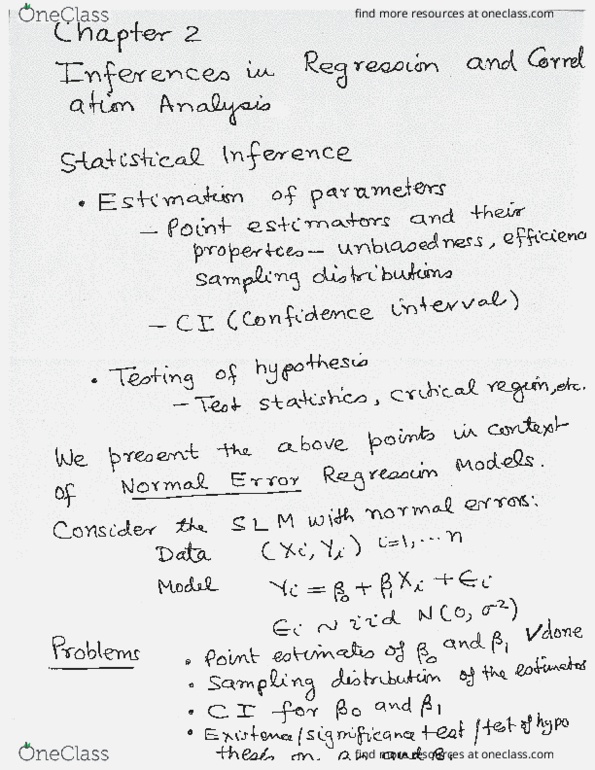 OneClass
find more resources at oneclass.com
Chapter 2
Inferences in Regression and Correl
ation Analysis
Statistical Inference
• Estimation of parameters
– Point estimators and their
propertces – unbiasedness, efficienc
sampling distributions
– CI (Confidence interval)
• Testing of hypothesis
– Test statistics, critical region, etc.
We present the above points in context
of Normal Error Regression Models.
Consider the SLM with normal errors:
Data (Xi, Yi) i=1, ... n
Model Yi = β0 + β1 Xi + ϵi
ϵi ~ iid N(0, σ²)
Problems • Point estimates of β0 and β1 √done
• Sampling distribution of the estimates
• CI for β0 and β1
• Existence/significance test/test of hypo
thesis on
OneClass
find more resources at oneclass.com